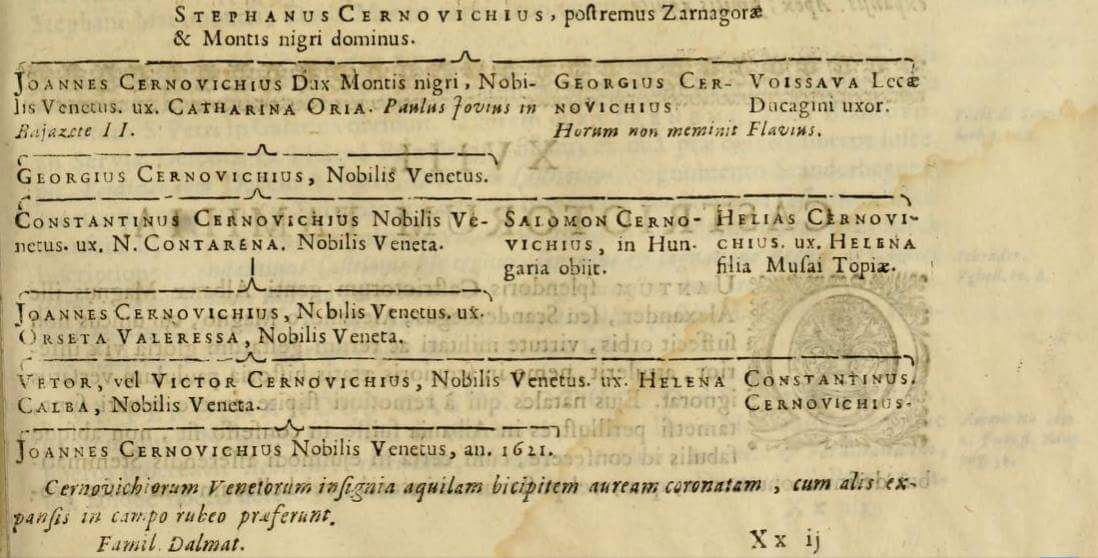 STEPHANUS CERNOVICHIUS, postremus Zarnagoræ
& Montis nigri dominus.
JOANNES CERNOVICHIUS Dux Montis nigri, Nobi-
lis Venetus. ux. CATHARINA ORIA. Paulus Jovius in
Bajazete II.
GEORGIUS CER-
NOVICHIUS
VOISSAVA Lecæ
Ducagini uxor.
Horum non meminit Flavius.
GEORGIUS CERNOVICHIUS, Nobilis Venetus.
CONSTANTINUS CERNOVICHIUS Nobilis Ve-
netus. ux. N. CONTARENA. Nobilis Veneta.
SALOMON CERNO-
VICHIUS, in Hun-
garia obiit.
HELIAS CERNOVI-
CHIUS. ux. HELENA
filia Musai Topiæ.
JOANNES CERNOVICHIUS, Nobilis Venetus. ux.
ORSETA VALERESSA, Nobilis Veneta.
VETOR, vel VICTOR CERNOVICHIUS, Nobilis Venetus. ux. HELENA
CALBA, Nobilis Veneta.
CONSTANTINUS.
CERNOVICHIUS.
JOANNES CERNOVICHIUS Nobilis Venetus, an. 1621.
Cernovichiorum Venetorum insignia aquilam bicipitem auream coronatam, cum alis ex-
pansis in campo rubeo præferunt.
Famil. Dalmat.
Xx ij